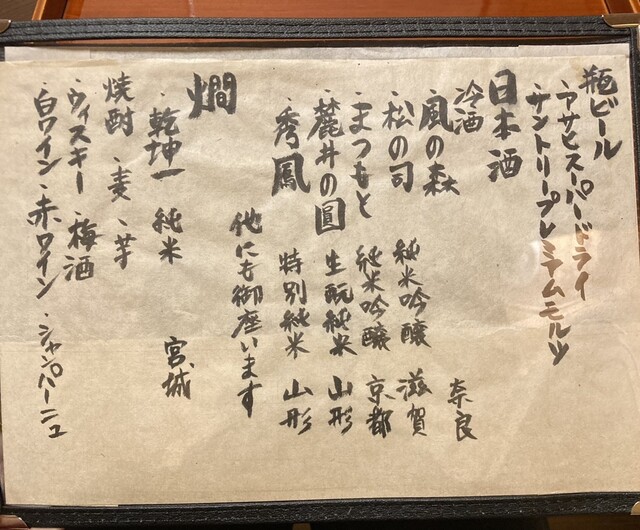 瓶ビール
・アサヒスーパードライ
・サントリープレミアムモルツ
日本酒
冷酒
・風の森 奈良
・松の司 純米吟醸 滋賀
・まつもと 純米吟醸 京都
・麓井の圓 生酛純米 山形
・秀鳳 特別純米 山形
他にも御座います
燗
・乾坤一 純米 宮城
焼酎 ・麦 ・芋
・ウィスキー ・梅酒
・白ワイン ・赤ワイン ・シャンパーニュ